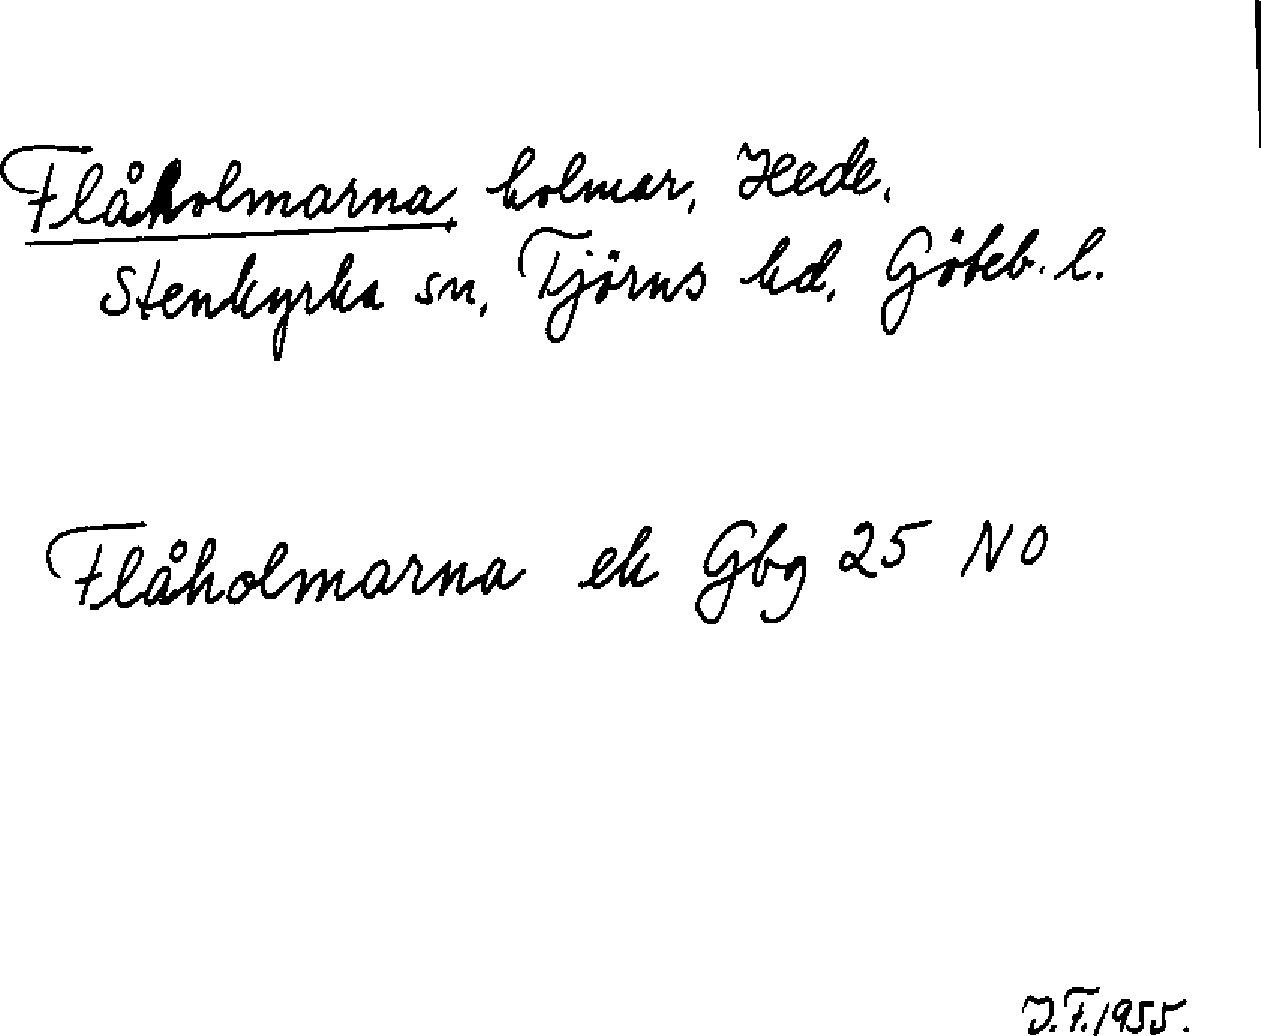 Flåholmarna, holmar, Hede,
Stenkyrka sn, Tjörns hd, Göteb. l.
Flåholmarna ek Gbg 25 NO
J.F. 1955.